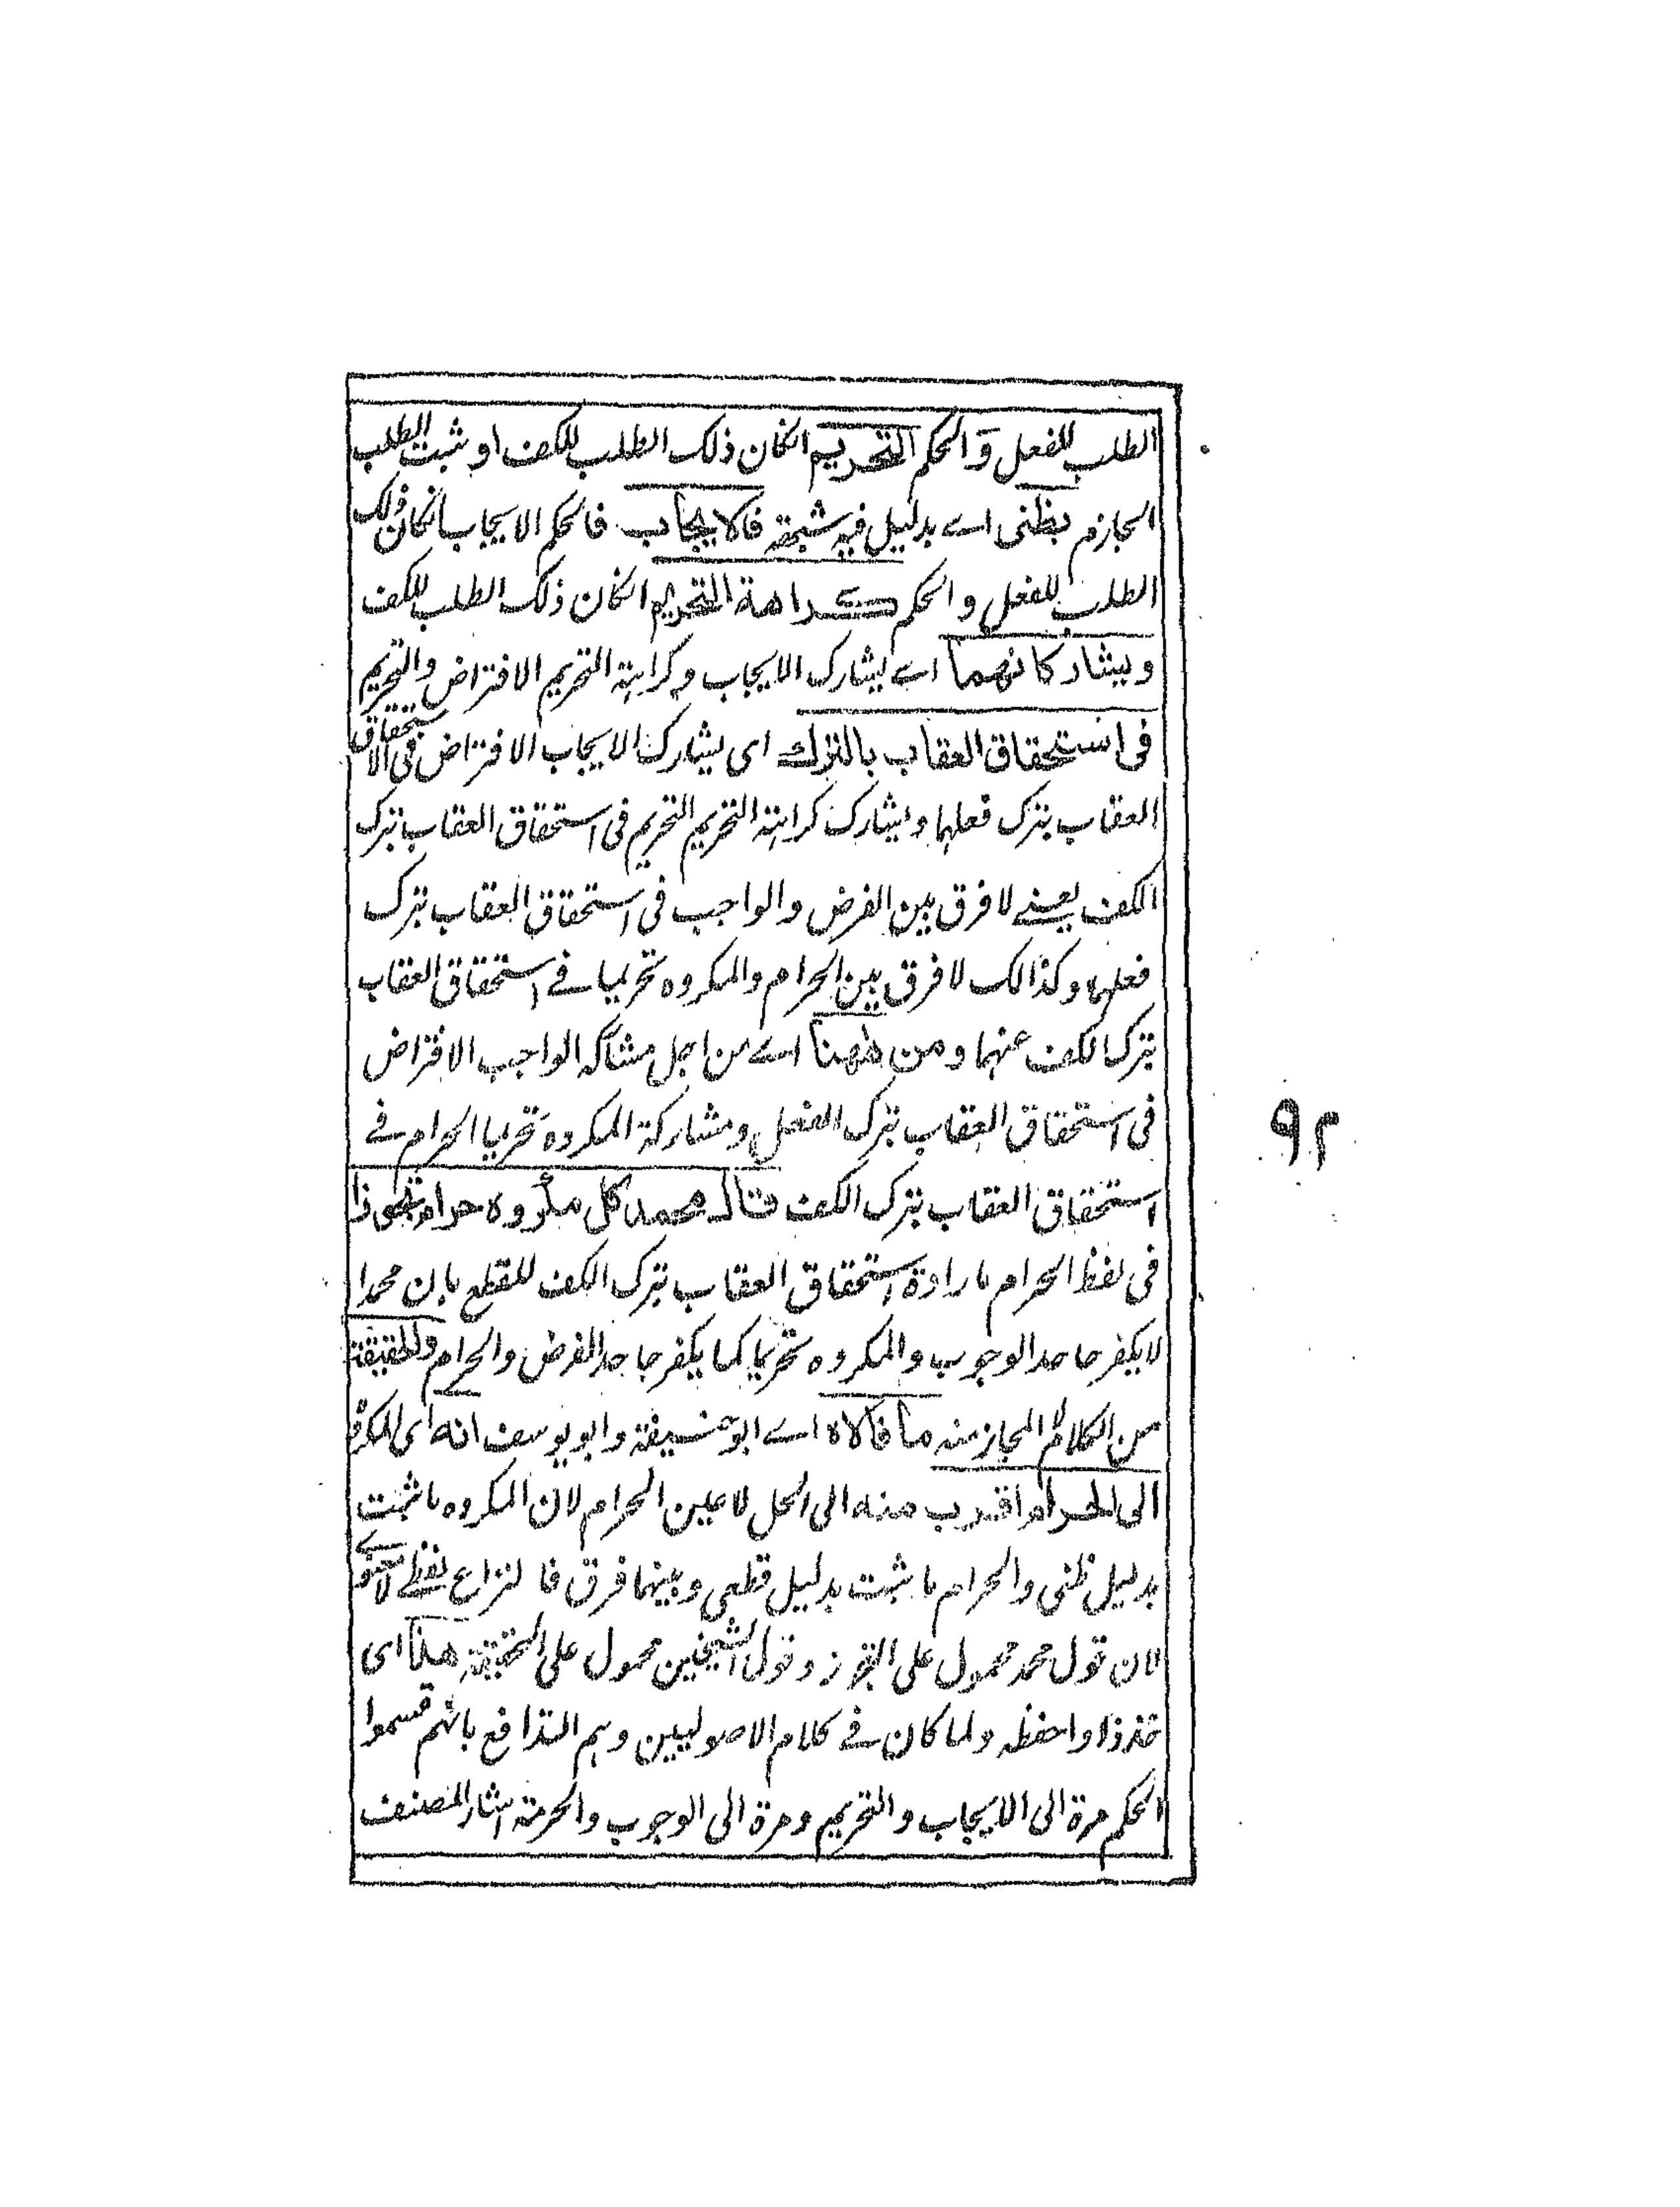 الطلب للفعل وَالحكم التحريم انكان ذلك الطلب للكف او ثبت الطلب
الجازم بظنى اے بدليل فيه شبهة فالايجاب فالحكم الايجاب انكان ذلك
الطلب للفعل والحكم كراهة التحريم انكان ذلك الطلب للكف
ويشاركانهما اے يشارك الايجاب وكراهة التحريم الافتراض والتحريم
فى استحقاق العقاب بالترك اى يشارك الايجاب الافتراض فى الاستحقاق
العقاب بترك فعلهما ويشارك كراهة التحريم التحريم فى استحقاق العقاب بترك
الكف يعنے لا فرق بين الفرض والواجب فى استحقاق العقاب بترك
فعلهما وكذالك لا فرق بين الحرام والمكروه تحريما فے استحقاق العقاب
بترك الكف عنهما ومن ههنا اے من اجل مشاركة الواجب الافتراض
فى استحقاق العقاب بترك الفعل ومشاركة المكروه تحريما الحرام فے
استحقاق العقاب بترك الكف قال محمد كل مكروه حرام تجوزا
فى لفظ الحرام بارادة استحقاق العقاب بترك الكف للقطع بان محمدا
لا يكفر جاحد الوجوب والمكروه تحريما كما يكفر جاحد الفرض والحرام والحقيقة
من الكلام المجاز منه ما قالاه اے ابو حنيفة وابو يوسف انه اى المكروه
الى الحرام اقرب منه الى الحل لا عين الحرام لان المكروه ما ثبت
بدليل ظنى والحرام ما ثبت بدليل قطعى وبينهما فرق فالنزاع لفظے لا معنوے
لان قول محمد محمول على التجوز وقول الشيخين محمول على الحقيقة هذا اى
خذ ذا واحفظه ولما كان فے كلام الاصوليين وهم التدافع بانهم قسموا
الحكم مرة الى الايجاب والتحريم ومرة الى الوجوب والحرمة اشار المصنف
٩٢